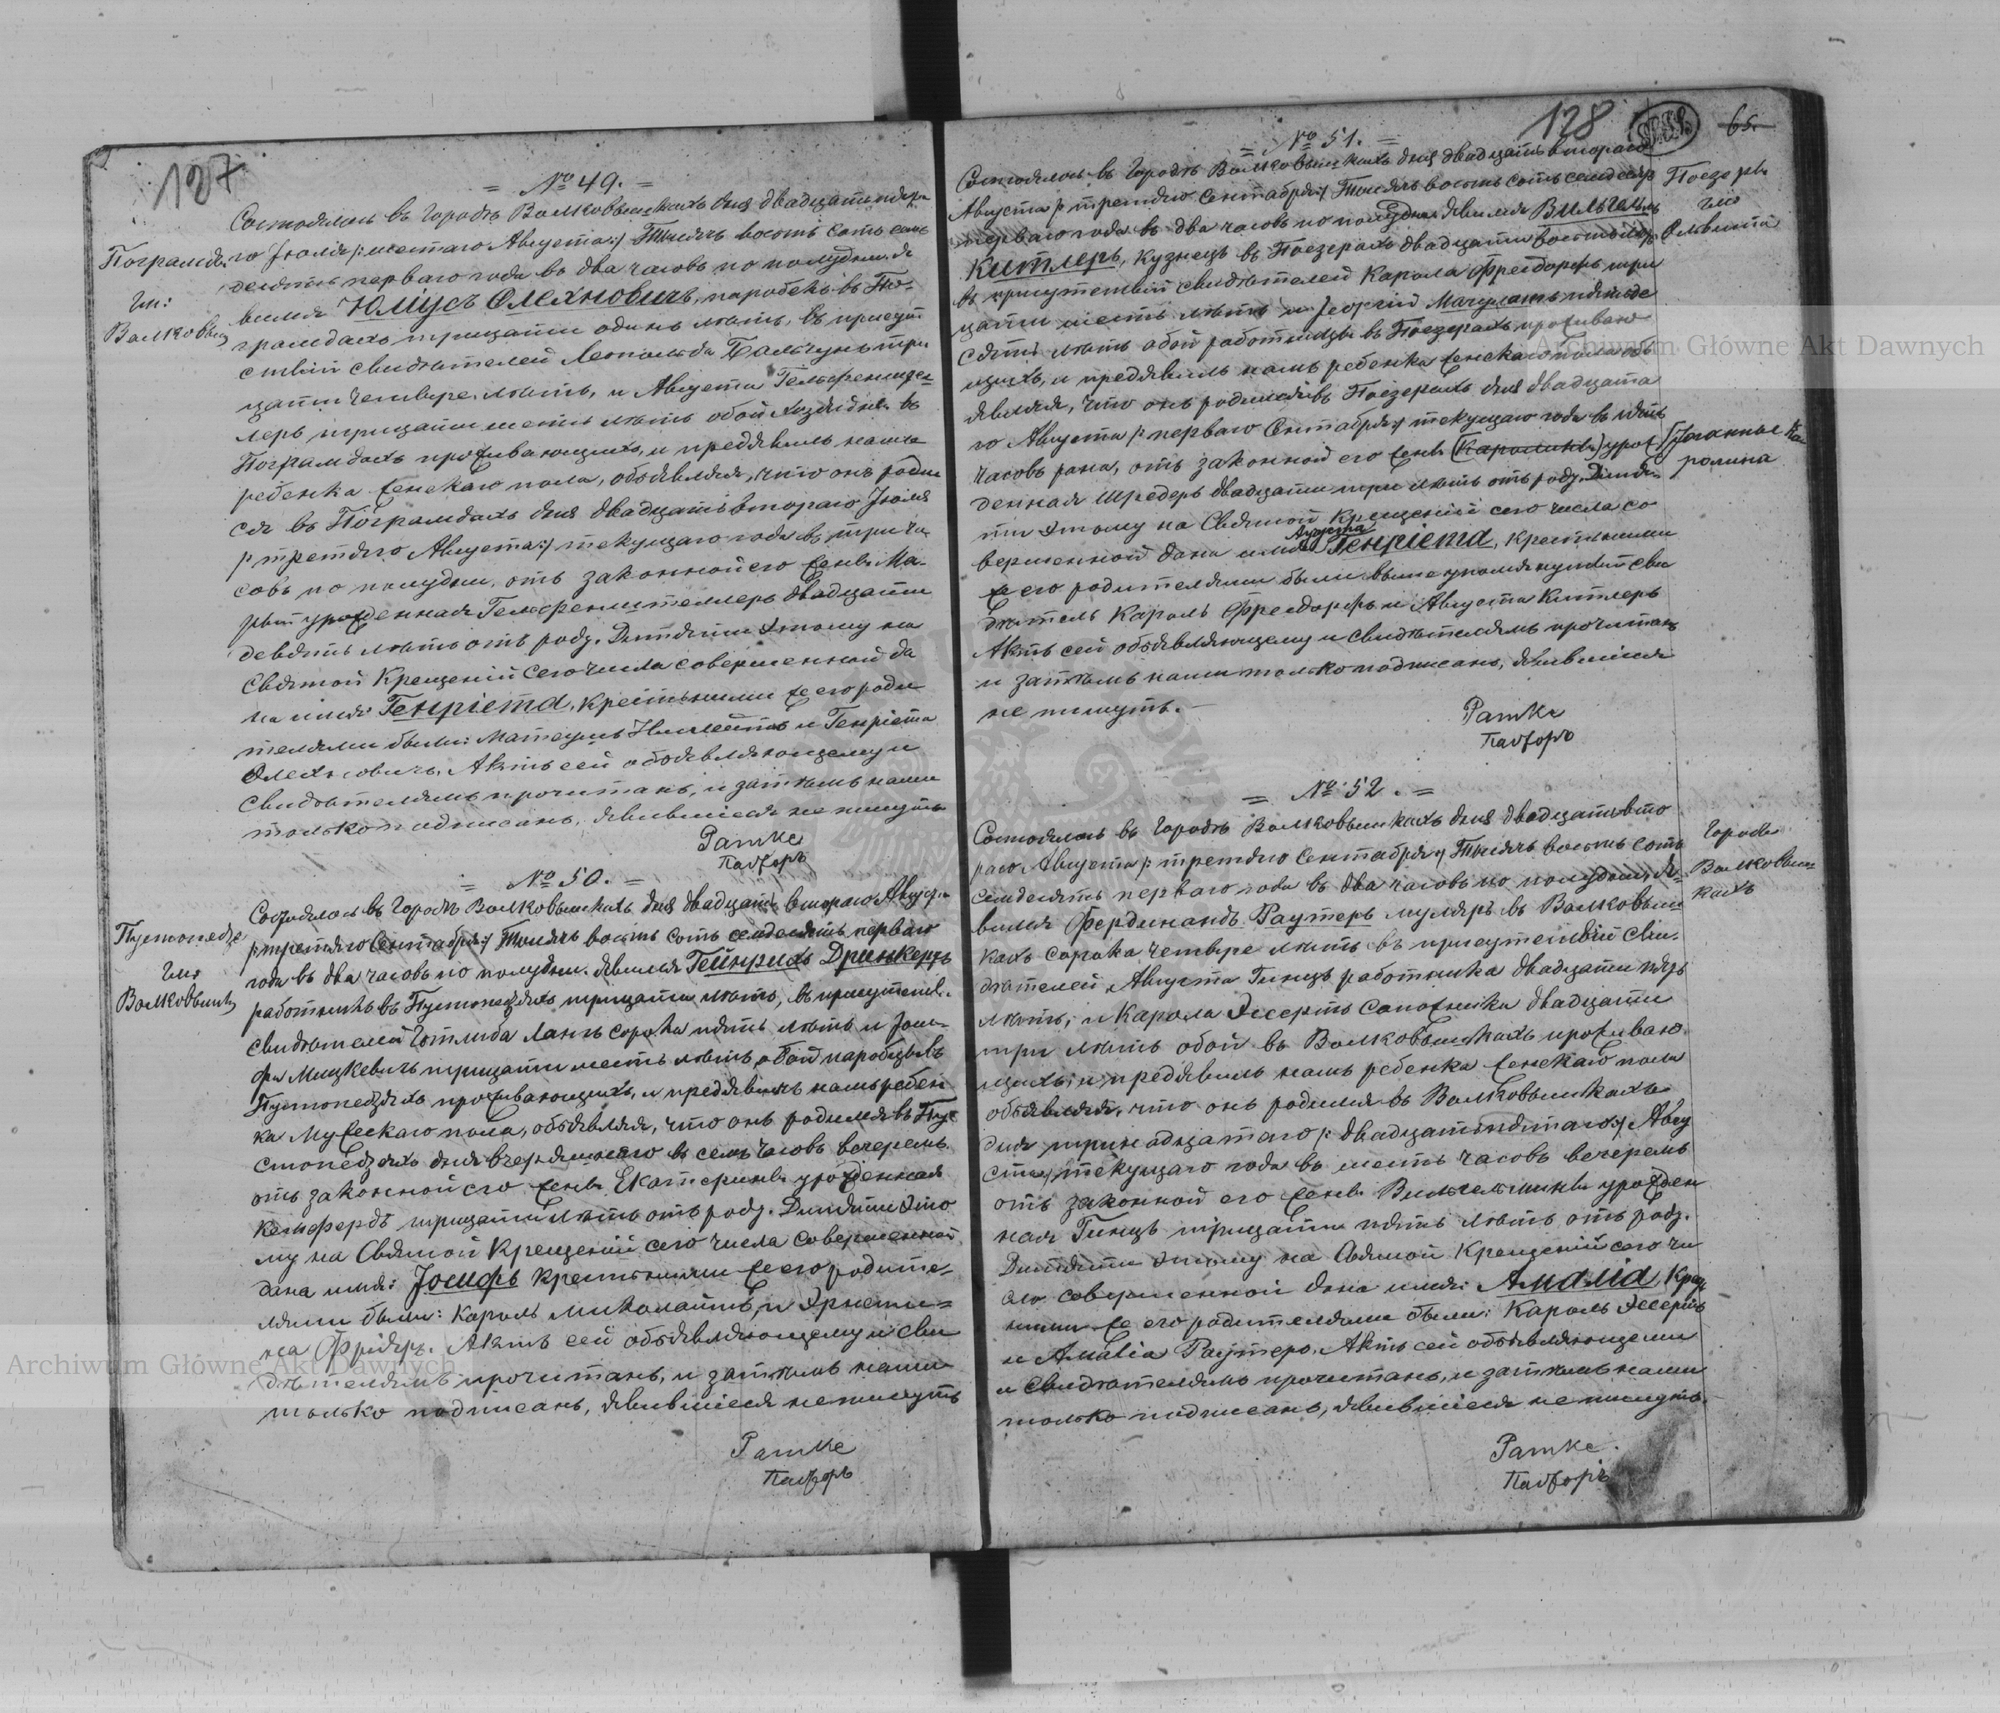 127
= № 49. =
Состоялось въ Городѣ Волковышкахъ дня двадцать пята
го Іюля /: шестаго Августа :/ Тысячь восемь сотъ семь
десять перваго года въ два часовъ по полудни. Я
вился Юліусъ Олехновичъ, паробекъ въ По-
грамдахъ тридцати одинъ лѣтъ, въ присут
ствіи свидѣтелей Леопольда Бальчунъ три
цати четыре лѣтъ, и Августа Гельфенштел-
леръ трицати шесть лѣтъ обой хозяидня въ
Пограмдахъ проживающихъ, и предявилъ намъ
ребенка женскаго пола, объявляя, что онъ родил
ся въ Пограмдахъ дня двадцать втораго Іюля
/: третяго Августа :/ текущаго года въ три ча-
совъ по полудни, отъ законной его жены Ма-
ріи урожденная Гельфенштеллеръ двадцати
девять лѣтъ отъ роду. Дитяти этому на
Святой Крещеній сего числа совершенной да
на имя: Генріета, крестными же его роди
телями были: Матеушъ и Генріета
Олехновичъ. Актъ сей объявляющему и
свидѣтелямъ прочитанъ, и затѣмъ нами
только подписанъ, явившіеся не пишутъ
Ратке
Пасторъ
Пограмды
гм:
Волковыш
= № 50. =
Состоялось въ Городѣ Волковышкахъ дня двадцать втораго Августа
/: третяго Сентября :/ Тысячь восемь сотъ семдесять перваго
года въ два часовъ по полудни. Явился Гейнрихъ Дринкертъ
работникъ въ Пустопедзяхъ трицати лѣтъ, въ присутствіи
свидѣтелей Готлиба Лангъ сорока пять лѣтъ и Іоси-
фа Мицкевичъ трицати шесть лѣтъ, обой паробцы въ
Пустопедзяхъ проживающихъ, и предявилъ намъ ребен
ка Мужескаго пола, объявляя, что онъ родился въ Пу-
стопедзяхъ дня вчерашняго въ семь часовъ вечеромъ
отъ законной его жены Екатерины урожденная
Кемфертъ трицати лѣтъ отъ роду. Дитяти это
му на Святой Крещеній сего числа совершенной
дана имя: Іосифъ крестными же его родите-
лями были: Кароль Миколайтъ, и Эрнести-
на Фрідръ. Актъ сей объявляющему и сви
дѣтелямъ прочитанъ, и затѣмъ нами
только подписанъ, явившіеся не пишутъ
Ратке
Пасторъ
Пустопедзе
гм:
Волковышки
128
65.
= № 51. =
Состоялось въ Городѣ Волковышкахъ дня двадцать втораго
Августа /: третяго Сентября :/ Тысячь восемь сотъ семдесять
перваго года въ два часовъ по полудни. Явился Вильгельмъ
Китлеръ, кузнецъ въ Поезерахъ двадцати восемь лѣтъ
въ присутствій свидѣтелей Карола Фрейдорфъ три
цати шесть лѣтъ и Георгій Мачулатъ пятьде
сятъ лѣтъ обой работницы въ Поезерахъ проживаю
щихъ, и предявилъ намъ ребенка женскаго пола объ
являя, что онъ родился въ Поезерахъ дня двадцата
го Августа /: перваго Сентября :/ текущаго года въ пять
часовъ рана, отъ законной его жены (Каролины) урож
денная Шредеръ двадцати три лѣтъ отъ роду. Дитя-
ти этому на Святой Крещеній сего числа со
вершенной дана имя Августа Генріета, крестными
же его родителями были выше упомянутый сви
дѣтель Кароль Фрейдорфъ и Августа Китлеръ
Актъ сей объявляющему и свидѣтелямъ прочитанъ
и затѣмъ нами только подписанъ, явившіеся
не пишутъ.
Ратке
Пасторъ
Поезеры
гм:
Ольвита
(Іоганны Ка
ролина
= № 52. =
Состоялось въ Городѣ Волковышкахъ дня двадцать вто
раго Августа /: третяго Сентября :/ Тысячь восемь сотъ
семдесять перваго года въ два часовъ по полудни. Я-
вился Фердинандъ Раутеръ муляръ въ Волковыш
кахъ сорока четыре лѣтъ въ присутствій сви-
дѣтелей, Августа Гинцъ работника двадцати пять
лѣтъ, и Карола Эссертъ Сапожника двадцати
три лѣтъ обой въ Волковышкахъ проживаю-
щихъ, и предявилъ намъ ребенка женскаго пола
объявляя, что онъ родился въ Волковышкахъ
дня тринадцатаго /: двадцать пятаго :/ Авгу
ста текущаго года въ шесть часовъ вечеромъ
отъ законной его жены Вильгельмины урожден
ная Гинцъ трицати пять лѣтъ отъ роду.
Дитяти этому на Святой Крещеній сего чи
сла совершенной дана имя: Амалія, крест
ными же его родителями были: Кароль Эссертъ
и Амалія Раутеръ. Актъ сей объявляющему
и свидѣтелямъ прочитанъ, и затѣмъ нами
только подписанъ, явившіеся не пишутъ.
Ратке.
Пасторъ
Городъ
Волковыш-
кахъ
Archiwum Główne Akt Dawnych
Archiwum Główne Akt Dawnych